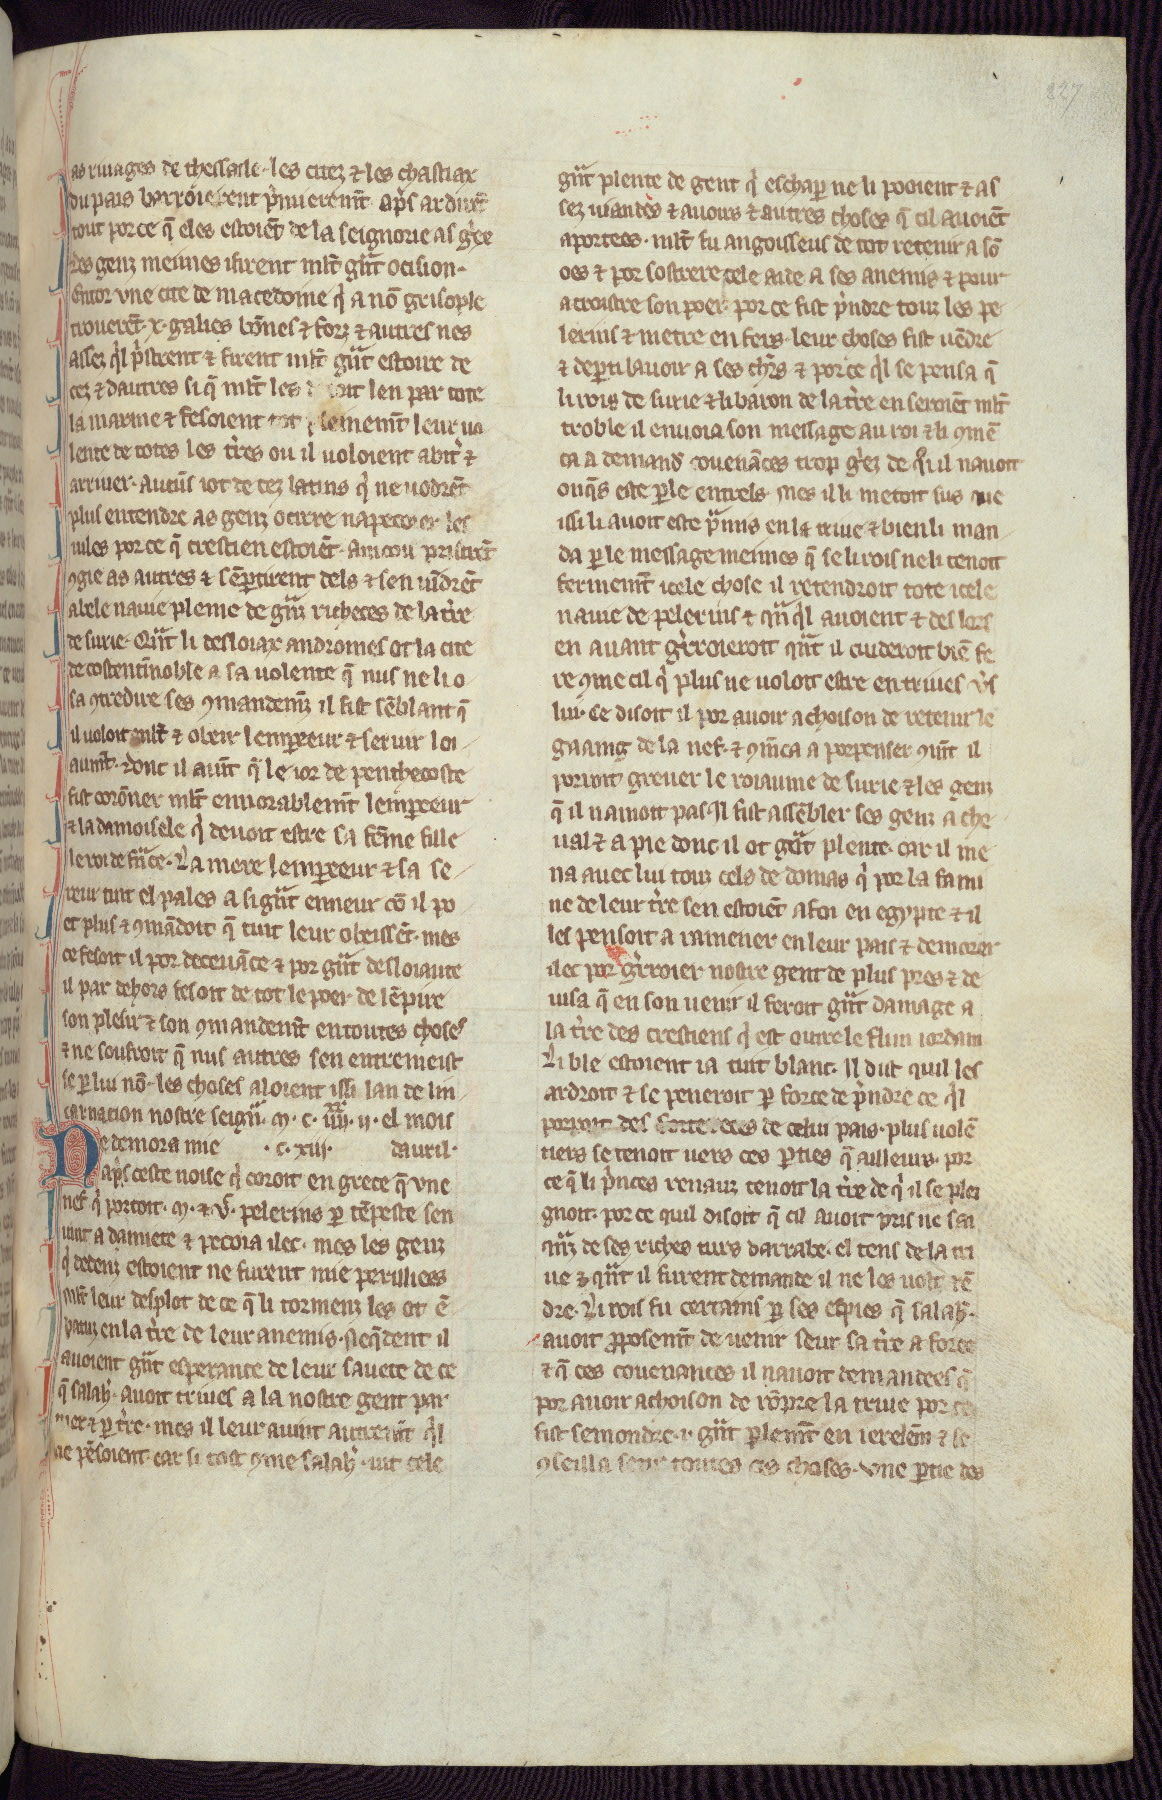 327
as riuages de thessaile· les citez ⁊ les chastiax
du pais barroierent p̃mierem̃t· ap̃s ardirẽt
tout por ce q̃ eles estoiẽt de la seignorie as gre
des genz meimes ifirent ml̃t gr̃t ocision·
Entor vne cite de macedoine q̓ a nõ grisople
trouerẽt· x· galies bõnes ⁊ forz ⁊ autres nes
assez q̓l p̓strent ⁊ firent ml̃t gr̃t estoire de
cez ⁊ dautres si q̃ ml̃t les len par tote
la marine ⁊ fesoient tot plenem̃t leur uo
lente de totes les t̃res ou il uoloient abitr̃ ⁊
arriuer· Aucũs iot de cez latins q̓ ne uodrẽt
plus entendre as genz ocirre na peceoier les
uiles por ce q̃ crestien estoiẽt· ancois pristrẽt
ꝯgie as autres ⁊ sẽꝑtirent dels ⁊ sen uĩdrẽt
a bele nauie pleine de gr̃z richeces de la t̃re
de surie· Qr̃t li desloiax andromes ot la cite
de costentinnoble a sa uolente q̃ nus ne li o
sa ꝯtredire ses ꝯmandem̃z il fist sẽblant q̃
il uoloit ml̃t ⁊ obeir lemꝑeeur ⁊ seruir loi
aum̃t· donc il auĩt q̃ le ior de penthecoste
fist corõner ml̃t ennorablem̃t lemꝑeeur
⁊ la damoisele q̓ deuoit estre sa fẽme fille
le roi de frãce· La mere lemꝑeeur ⁊ sa se
reur tint el pales a si gr̃t enneur cõ il po
et plus ⁊ ꝯmãdoit q̃ tuit leur obeissẽt· mes
ce fesoit il por deceuãce ⁊ por gr̃t desloiaute
il par dehors fesoit de tot le poer de lẽpire
son plesir ⁊ son ꝯmandem̃t en toutes choses
⁊ ne soufroit q̃ nus autres sen entremeist
se ꝑ lui nõ· les choses aloient issi lan de lin
carnacion nostre seignr̃· m· c· iiii·xx ii· el mois
Ne demora mie · c· xiii· dauril·
ap̃s ceste noise q̓ coroit en grece q̃ vne
nef q̓ portoit· m· ⁊· vᶜ· pelerins ꝑ tẽpeste sen
uint a damiete ⁊ pecoia ilec· mes les genz
q̓ dedenz estoient ne furent mie perilliees
ml̃t leur desplot de ce q̃ li tormenz les ot ẽ
batuz en la t̃re de leur anemis· Neq̃dent il
auoient gr̃t esperance de leur sauete de ce
q̃ salah̃· auoit triues a la nostre gent par
mer ⁊ ꝑ t̃re· mes il leur auint autrem̃t q̓l
ne pẽsoient· car si tost ꝯme salah̃· uit cele
gr̃t plente de gent q̓ eschaꝑ ne li pooient ⁊ as
sez uiandes ⁊ auoirs ⁊ autres choses q̃ cil auoiẽt
aportees· ml̃t fu angoisseus de tot retenir a sõ
oes ⁊ por sostrere cele aide a ses anemis ⁊ pour
acroistre son poer· por ce fist p̃ndre touz les pe
lerins ⁊ metre en fers· leur choses fist uẽdre
⁊ deꝑti lauoir a ses ch̃rs ⁊ por ce q̓l se pensa q̃
li rois de surie ⁊ li baron de la t̃re en seroiẽt ml̃t
troble il enuoia son message au roi ⁊ li ꝯmẽ
ca a demand̃ couenãces trop gr̃ez de q̓i il nauoit
onq̃s este ꝑle entrels· mes il li metoit sus que
issi li auoit este p̃mis en la triue ⁊ bien li man
da ꝑ le message meimes q̃ se li rois ne li tenoit
fermem̃t icele chose il retendroit tote icele
nauie de pelerins ⁊ qñq̓l auoient ⁊ des lors
en auant gr̃roieroit qr̃t il cuideroit biẽ fe
re ꝯme cil q̓ plus ne uoloit estre en triues ṽs
lui· Ce disoit il por auoir achoison de retenir le
gaaing de la nef· ⁊ ꝯm̃ca a porpenser ꝯm̃t il
porroit greuer le roiaume de surie ⁊ les genz
q̃ il namoit pas· Il fist assẽbler ses genz a che
ual ⁊ a pie donc il ot gr̃t plente· car il me
na auec lui touz cels de domas q̓ por la fami
ne de leur t̃re sen estoiẽt afoi en egypte ⁊ il
les pensoit a ramener en leur pais ⁊ demorer
ilec por gr̃roier nostre gent de plus pres ⁊ de
uisa q̃ en son uenir il feroit gr̃t damage a
la t̃re des crestiens q̓ est outre le flun iordain
Li ble estoient ia tuit blanc· Il dist quil les
ardroit ⁊ se peneroit ꝑ force de p̃ndre ce q̓l
porroit des forteresces de celui pais· plus uolẽ
tiers se tenoit uers ces ꝑties q̃ ailleurs· por
ce q̃ li p̃nces renauz tenoit la t̃re de q̓ il se plei
gnoit· por ce quil disoit q̃ cil auoit pris ne sai
qñz de ses riches turs darrabe· el tens de la tri
ue ⁊ qr̃t il furent demande il ne les uolt rẽ
dre· Li rois fu certains ꝑ ses espies q̃ salah̃·
auoit ꝓposem̃t de uenir seur sa t̃re a force
⁊ q̃ ces couenances il nauoit demandees q̃
por auoir achoison de rõpre la triue por ce
fist semondre· i· gr̃t ꝑlem̃t en ierelẽm ⁊ se
ꝯseilla seur toutes ces choses· vne ꝑtie des